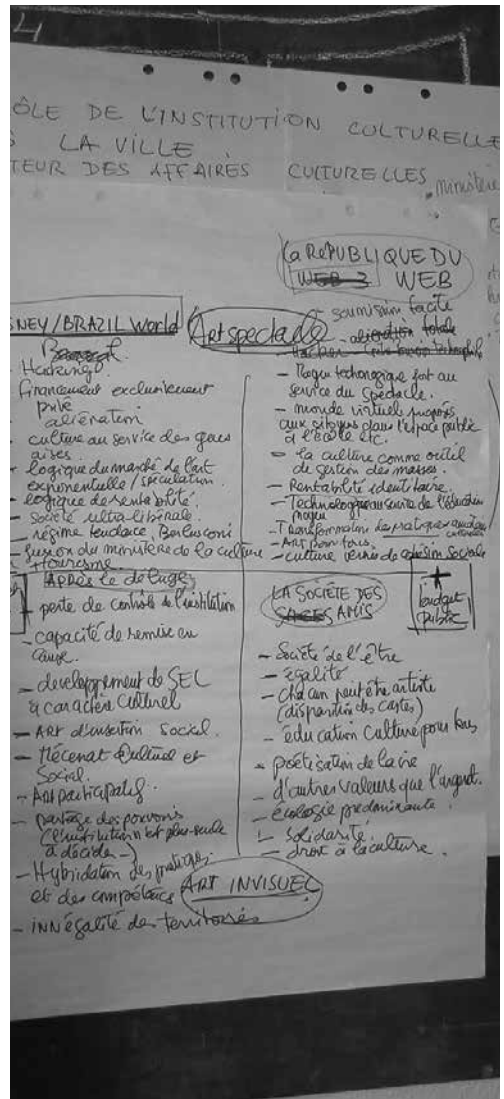 ÔLE DE L'INSTITUTION CULTURELLE
LA VILLE
TEUR DES AFFAIRES CULTURELLES, ministère
La RéPUBLIQUE DU
WEB
NEY/BRAZIL World
Art spectacle
Hacking
financement exclusivement
privé
aliénation
culture au service des gens
aisés
- logique du marché de l'art
exponentielle / spéculation
- logique de rentabilité.
- Société ultra-libérale.
- régime tendance Berlusconi
- fusion du ministère de la culture
+ tourisme
- soumission facile
service du spectacle.
- monde virtuel
aux citoyens dans l'espace public
à l'école etc.
- la culture comme outil
de gestion des masses.
- Rentabilité identitaire.
- Art pour tous.
- culture vernis de cohésion sociale
APRÈS le déluge
- perte de contrôle de l'institution
- capacité de remise en
cause.
- developpement de SEL
à caractère culturel
- ART d'insertion social.
- Mécénat culturel et
Social.
- Art participatif.
- partage des pouvoirs
(l'institution est plus seule
à décider)
- Hybridation des pratiques
et des compétences
- innégalité des territoires
ART INVISUEL
LA SOCIÉTÉ DES
AMIS
budget
public
- Société de l'être
- égalité
- chacun peut être artiste
(disparition des castes)
- éducation culture pour tous
- poétisation de la vie
- d'autres valeurs que l'argent.
- écologie prédominante.
- solidarité.
- droit à la culture.